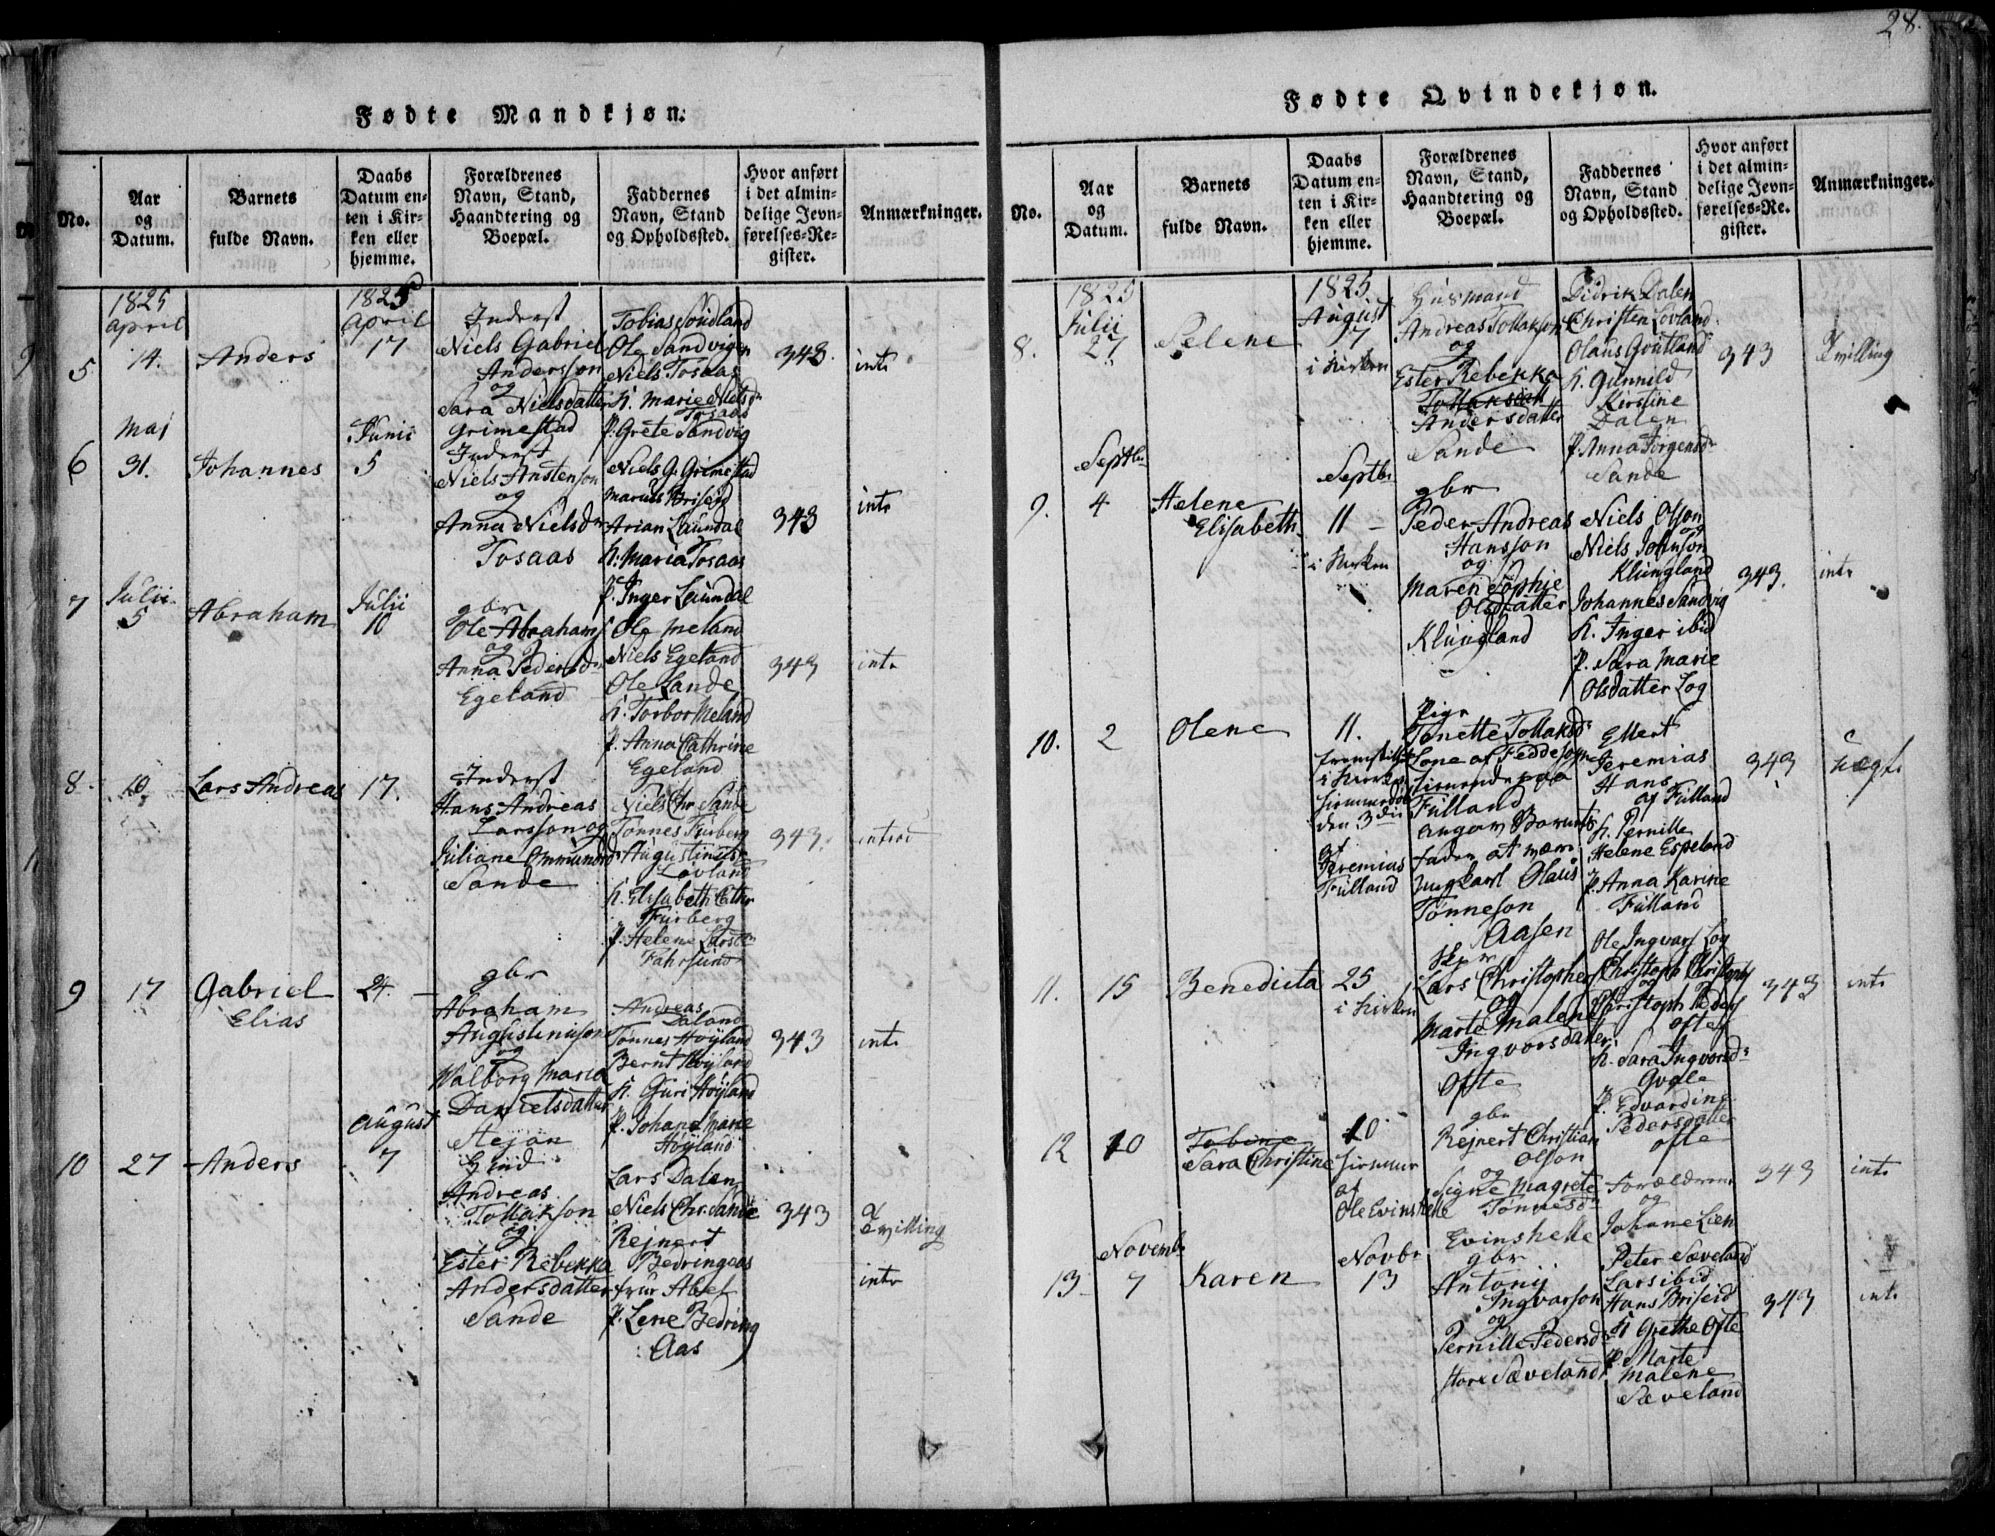 28.
Fødte Mandkjøn.
No.
Aar og Datum.
Barnets fulde Navn.
Daabs Datum enten i Kirken eller hjemme.
Forældrenes Navn, Stand, Haandtering og Boepæl.
Faddernes Navn, Stand og Opholdssted.
Hvor anført i det almindelige Jevnførelses-Register.
Anmærkninger.
1825
April
5
14.
Anders
1825
April
17
Inderst
Niels Gabriel
Andersson
og
Sara Nielsdatter
Grimestad
Ole Sandvigen
Niels Tosaas
K. Marie Nielsdr
Tosaas
P. Grete Sandvig
343.
intr
Maj
6
31.
Johannes
Junii
5
Inderst
Niels Anstenson
og
Anna Nielsdr
Tosaas
Niels G. Grimestad
Marcus Briseid
Arian Laundal
K. Maria Tosaas
P. Inger Laundal
343
intr
7
Julii
5
Abraham
Julii
10
gbr
Ole Abrahams
og
Anna Pedersdr
Egeland
Ole Meland
Niels Egeland
Ole Lande
K. Torbor Meland
P. Anna Cathrine
Egeland
343
intr
8
10
Lars Andreas
17.
Inderst
Hans Andreas
Larsson og
Juliane Ommundsdr
Sande
Niels Chr. Sande
Tønnes Furberg
Augustinus
Lovland
K. Elisabeth Cathr
Furberg
P. Helene Larsdr
Fahrsund
343.
introd
9
17
Gabriel
Elias
24.
gbr
Abraham
Augustinuson
og
Walborg Maria
Danielsdatter
Stejan
Andreas
Daland
Tønnes Høyland
Bernt Høyland
K. Guri Høyland
P. Johana Marie
Høyland
343
intr
August
10
27
Anders
7
Huusmd
Andreas
Tollakson
og
Ester Rebekka
Andersdatter
Sande
Lars Dalen
Niels Chr. Sande
Rejnert
Bedringaas
frue Abel
P. Lene Bedring
Aas
343
Tvilling
intr
Fødte Qvindekjøn.
No.
Aar og Datum.
Barnets fulde Navn.
Daabs Datum enten i Kirken eller hjemme.
Forældrenes Navn, Stand, Haandtering og Boepæl.
Faddernes Navn, Stand og Opholdssted.
Hvor anført i det almindelige Jevnførelses-Register.
Anmærkninger.
1825
Julii
8.
27
Selene
1825
August
7
i Kirken
Husmand
Andreas Tollakson
og
Ester Rebekka
Tollaksdatt
Andersdatter
Sande
Didrik Dalen
Christen Lovland
Olaus Grutland
K. Gunnild
Kirstine
Dalen
P. Anna Jørgensdr
Sande
343
Tvilling
Septbr
9.
4
Helene
Elisabeth
Septbr
11
i Kirken
gbr
Peder Andreas
Hansson
og
Maren Sophie
Olsdatter
Klungland
Niels Olson
og
Niels Johnson
Klungland
Johannes Sandvig
K. Inger ibid
P. Sara Marie
Olsdatter Log
343.
intr
10.
2
Olene
11.
i Kirken
hiemmedøbt
den 3die
af
Jeremias
Fulland
Pige
Tonette Tollaksdr
Lone af Feddesogn
tienende paa
Fulland
angav Barnets
fader at være
Ungkarl Olaus
Tønneson
Aasen
Ellert
Jeremias
Hans
af Fulland
K. Pernille
Helene Espeland
P. Anna Karine
Fulland
343
Uægte
11.
15
Benedicta
25
i Kirken
Lars Christophers
og
Marte Malene
Ingvorsdatter
Ofte
Ole Ingvars Log
Christoph Christophs
og
Christoph Peders
Ofte
K. Sara Ingvorsdr
Qvale
P. Edvardine
Pedersdatter
Ofte
343
intr
12
10
Tobine
Sara Christine
10
hiemme
af
Ole Evinshelle
gbr
Rejnert Christian
Olson
og
Signe Magrete
Tønnesdr
Evinshelle
Forældrene
og
Johane Lien
343
intr
Novembr
13
7
Karen
Novbr
13
gbr
Antonij
Ingvarson
og
Pernille Pedersdr
Store Sæveland
Peter Sæveland
Lars ibid
Hans Briseid
K Grethe Ofte
P. Marte
Malene
Sæveland
343
intr